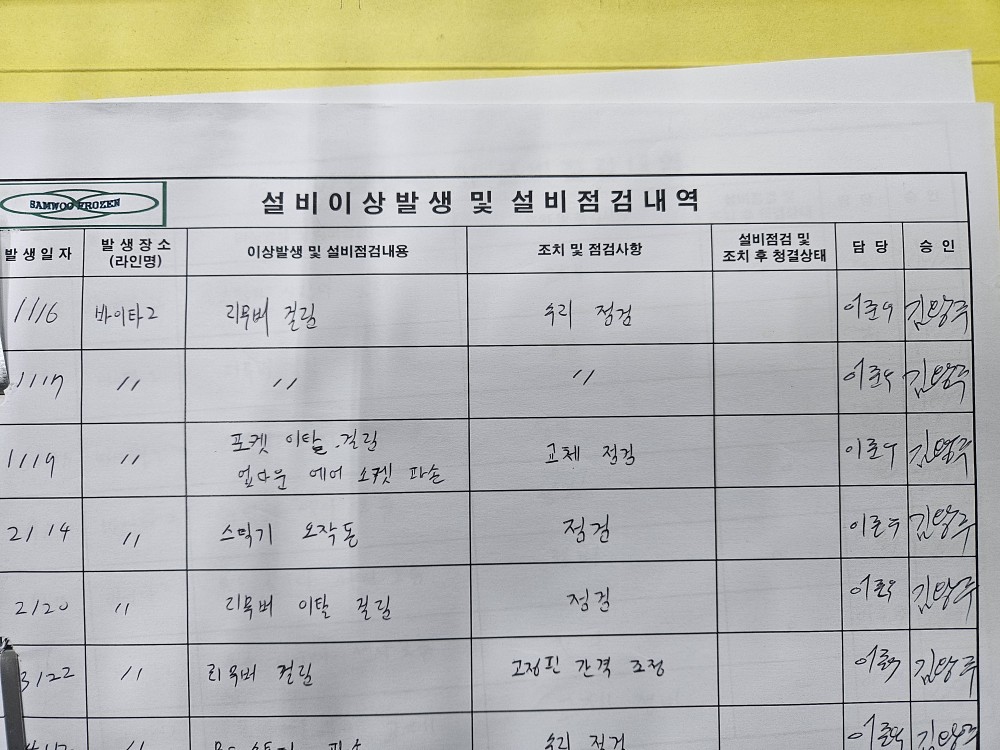 SAMWOO FROZEN
설비이상발생 및 설비점검내역
발생일자 발생장소 이상발생 및 설비점검내용 조치 및 점검사항 설비점검 및 담당 승인
(라인명) 조치 후 청결상태
1/16 바이타2 리무버 걸림 수리 점검 이준우
1/17 〃 〃 〃 이준우
1/19 〃 포켓 이탈 걸림 교체 점검 이준우
업다운 에어 소켓 파손
2/14 〃 스틱기 오작동 점검 이준우
2/20 〃 리무버 이탈 걸림 점검 이준우
3/22 〃 리무버 걸림 고정핀 간격 조정 이준우
〃 수리 점검